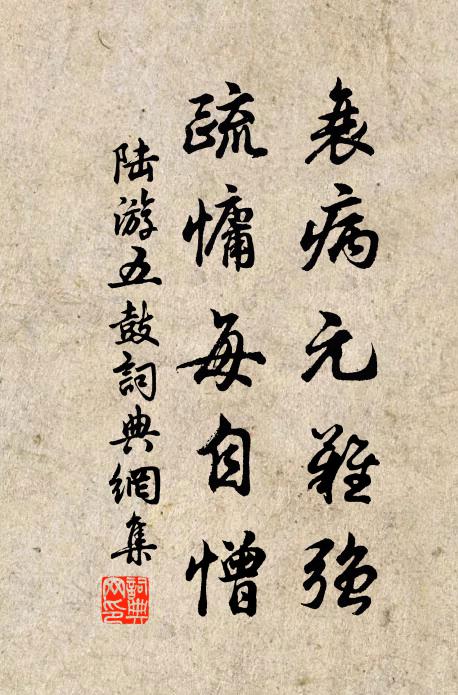 衰病元難強
疏慵每自憎
陸游五鼓詞典網集
詞典網印